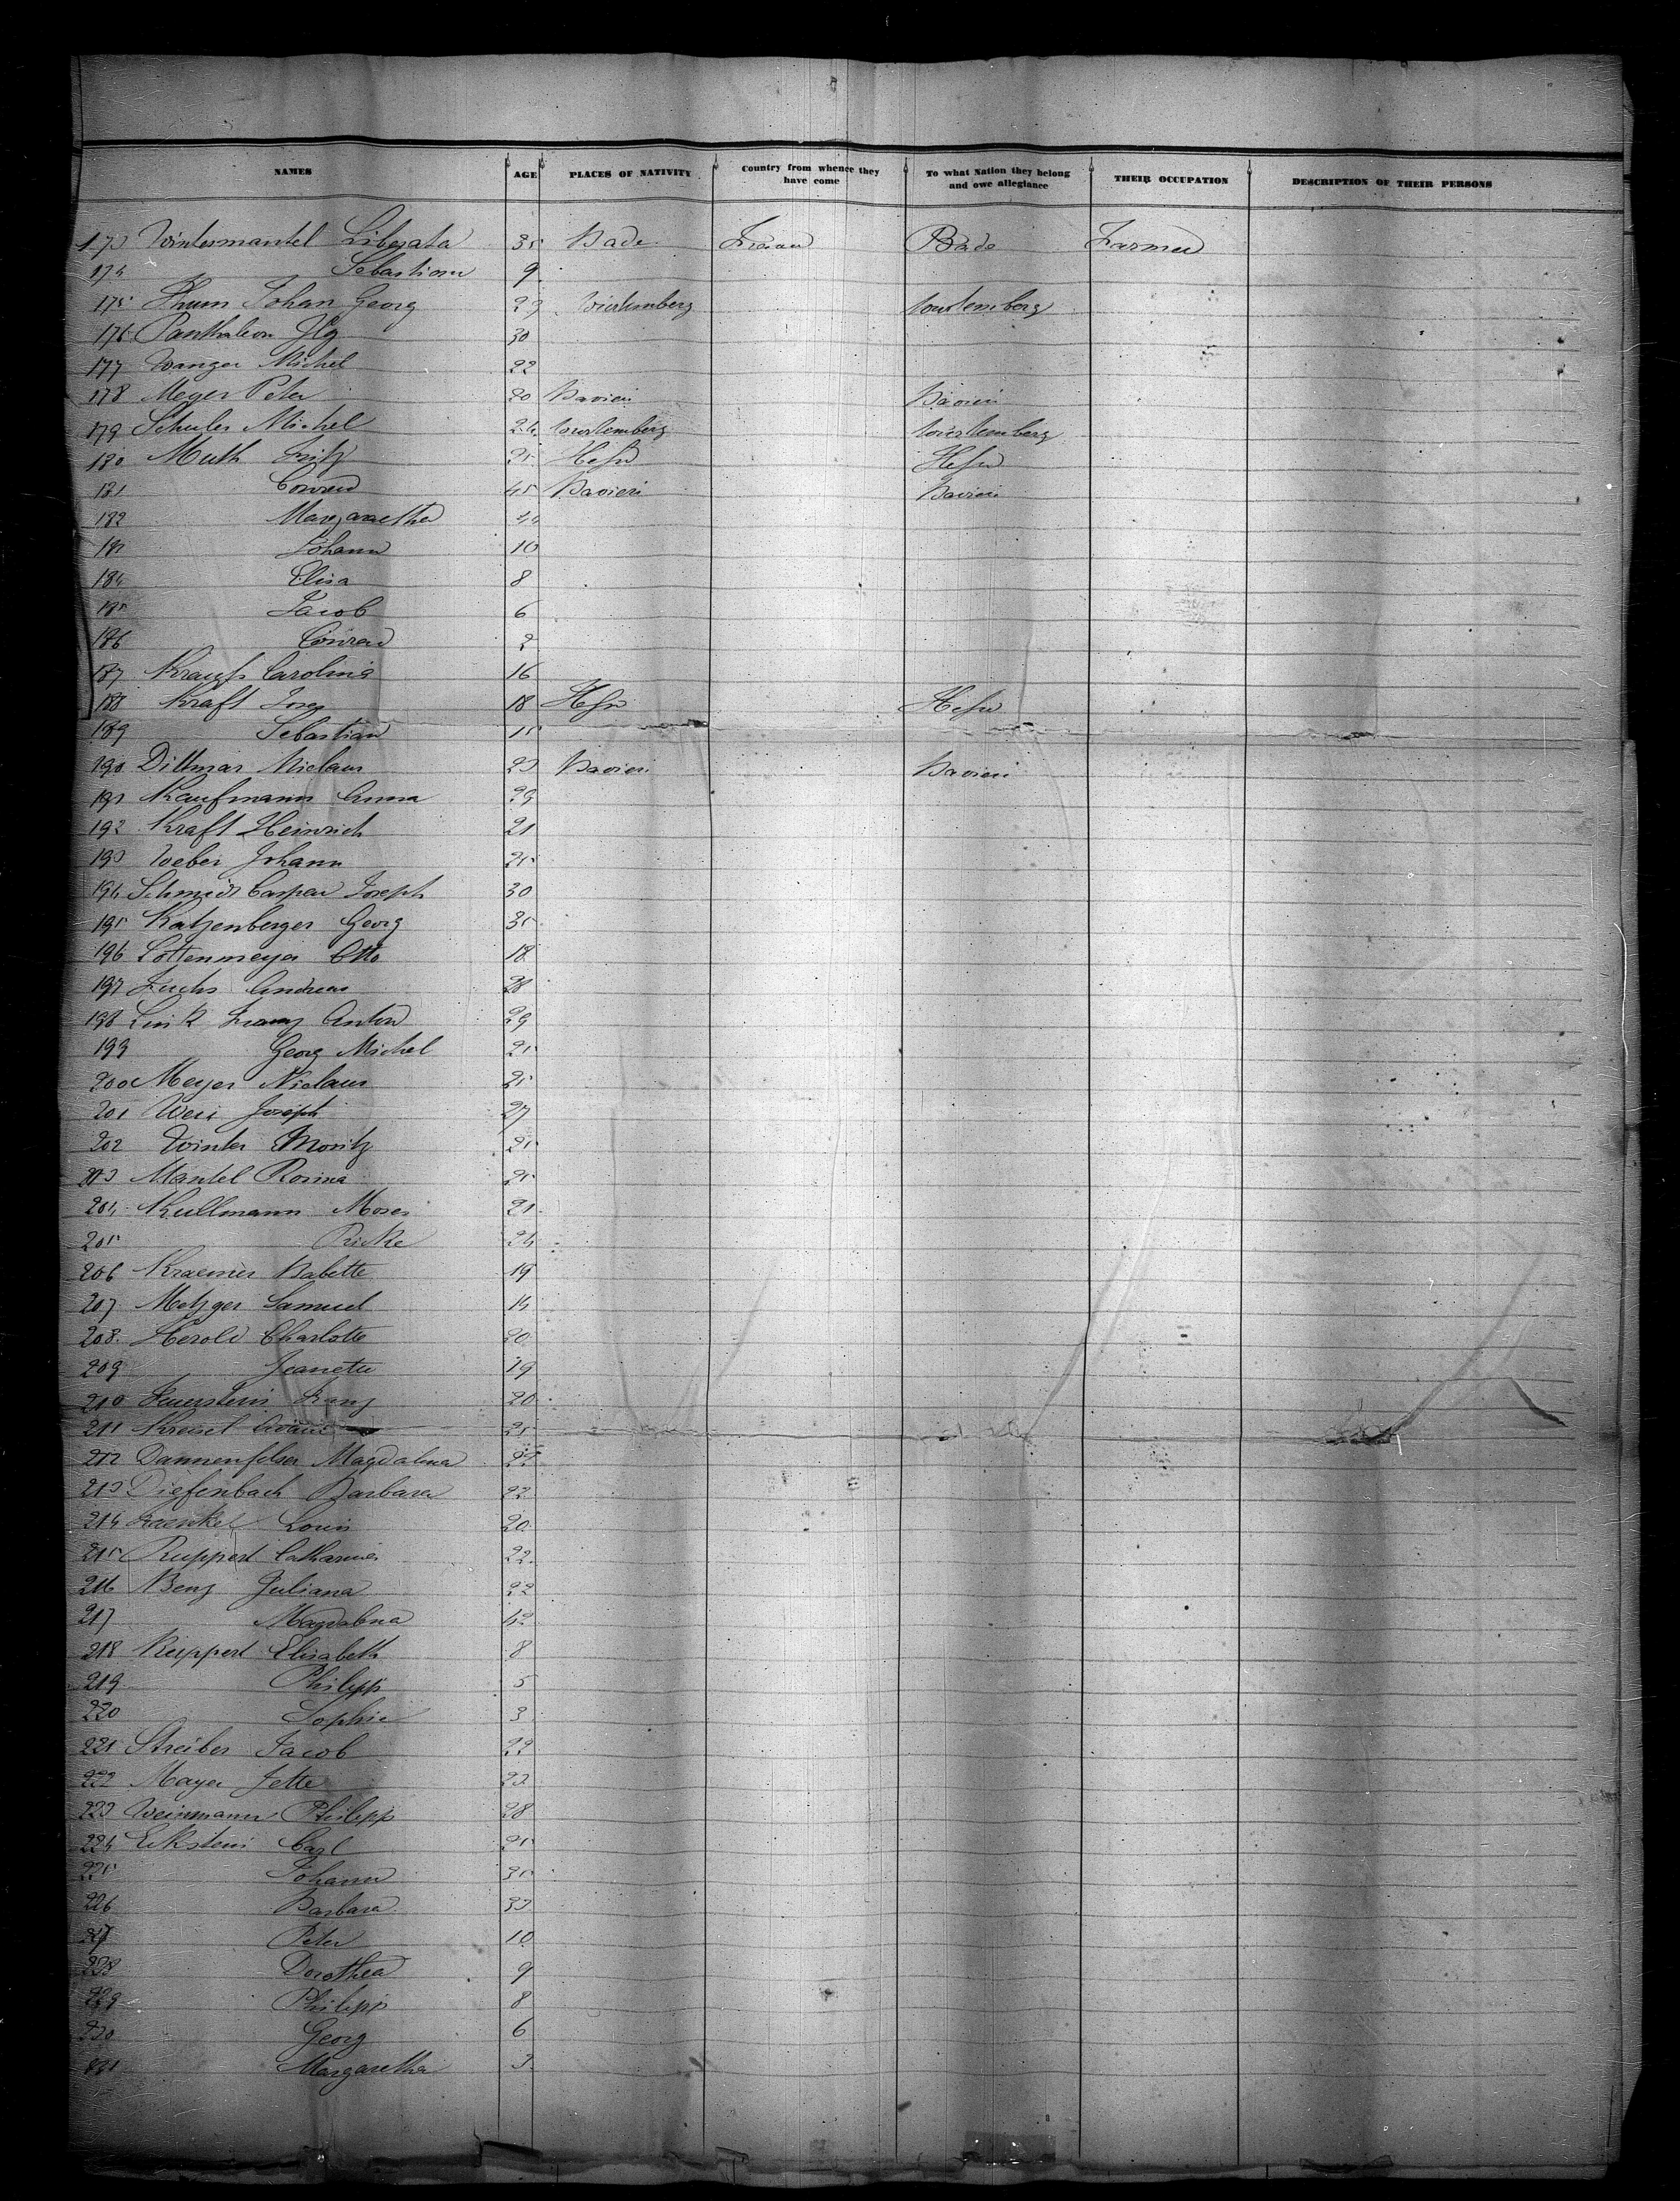 NAMES AGE PLACES OF NATIVITY Country from whence they have come To what Nation they belong and owe allegiance THEIR OCCUPATION DESCRIPTION OF THEIR PERSONS
173 Wintermantel Liberata 35 Bade Bade Farmer
174 Sebastian 9
175 Thum Johan Georg 29 Wurtemberg Wurtemberg
176 Panthaleon Ilg 30
177 Wanger Michel 22
178 Meyer Peter 20 Bavieri Bavieri
179 Schuler Michel 24 Wurtemberg Wurtemberg
180 Muth Fritz 25 Hesse Hesse
181 Conrad 45 Bavieri Bavieri
182 Margaretha 44
183 Johann 10
184 Elisa 8
185 Jacob 6
186 Conrad 2
187 Krauss Carolina 16
188 Kraft 18 Hesse Hesse
189 Sebastian 15
190 Dittmar Niclaus 23 Bavieri Bavieri
191 Kaufmann Anna 29
192 Kraft Heinrich 21
193 Weber Johann 25
194 Schmidt Caspar Joseph 30
195 Katzenberger Georg 35
196 Lottenmeyer Otto 18
197 Fuchs Andreas 28
198 Link Franz Anton 29
199 Georg Michel 25
200 Meyer Niclaus 25
201 Joseph 27
202 Winter Moritz 25
203 Mantel Rosina 25
204 Kullmann Moses 21
205 Ricke 24
206 Kraemer Babette 19
207 Metzger Samuel 14
208 Herold Charlotte 20
209 Jeanette 19
210 Feuerstein Franz 20
211 Kreisel 25
212 Dannenfelser Magdalena
213 Diefenbach Barbara 22
214 Fraenkel Louis 20
215 Ruppert Catharina 22
216 Benz Juliana 22
217 Magdalena 42
218 Ruppert Elisabeth 8
219 Philipp 5
220 Sophie 3
221 Streiber Jacob 22
222 Mayer Jette 23
223 Weinmann Philipp 28
224 Eckstein Carl 25
225 Johann 35
226 Barbara 33
227 Peter 10
228 Dorothea 9
229 Philipp 8
230 Georg 6
231 Margaretha 3